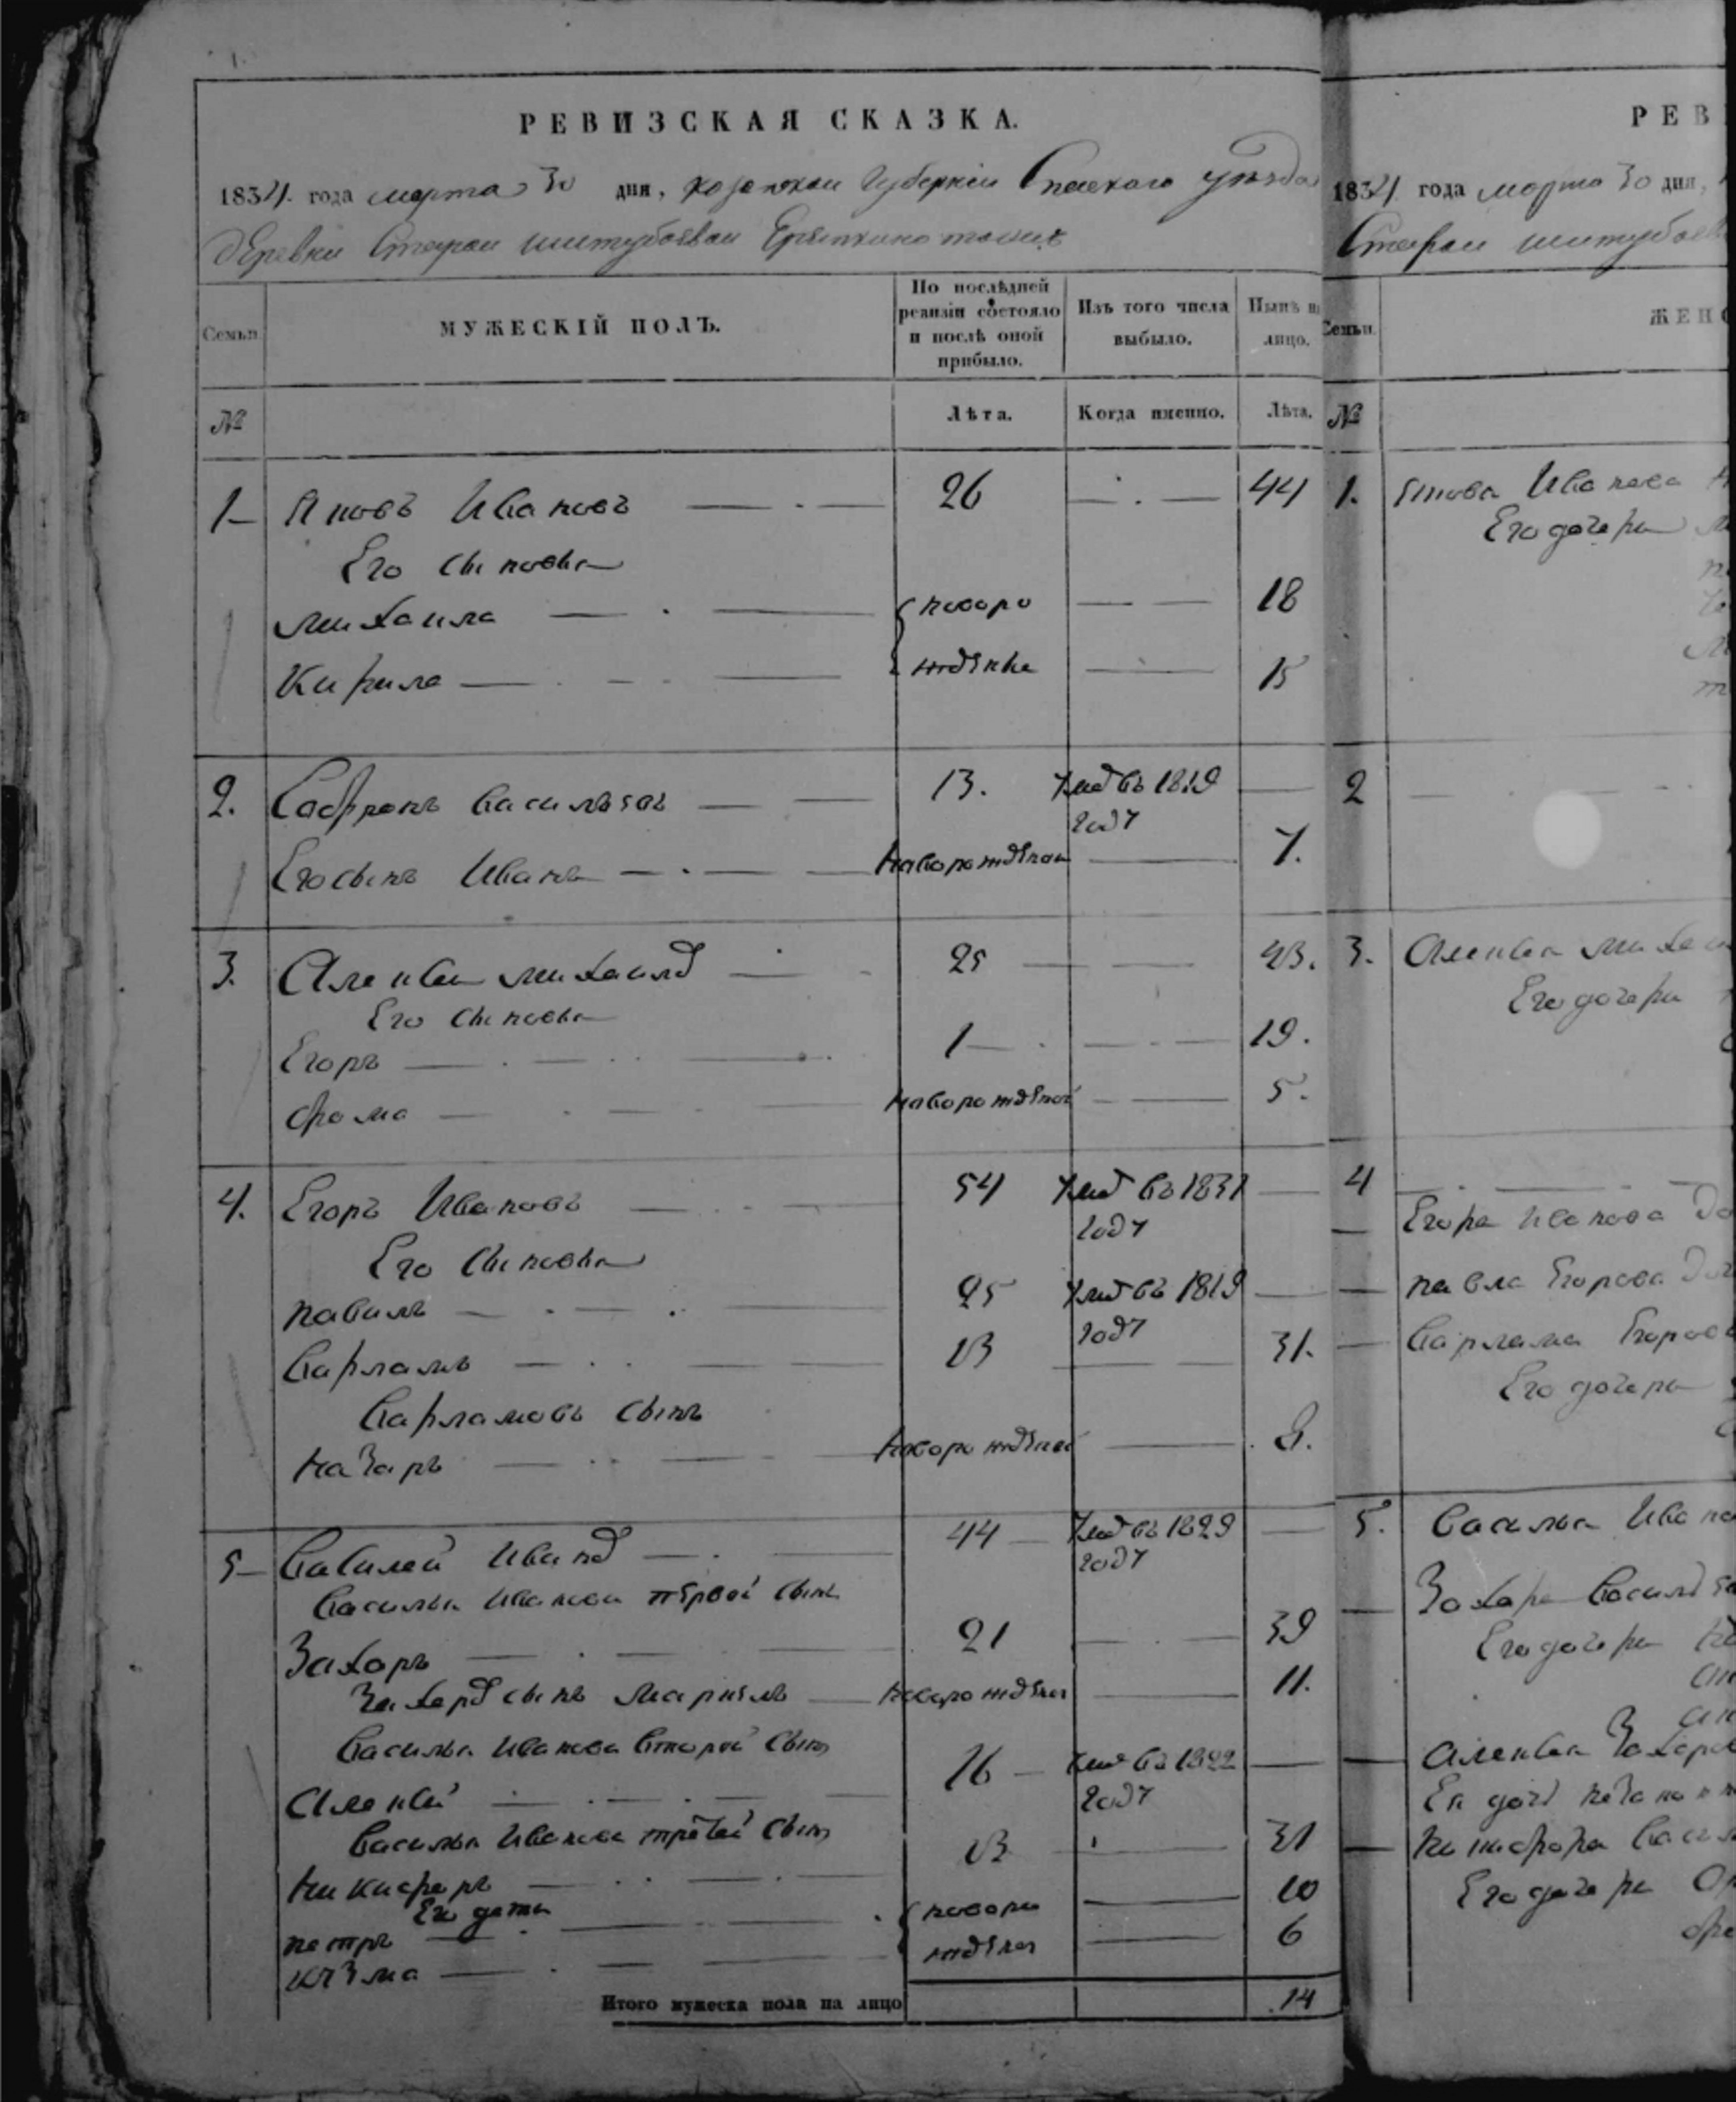 РЕВИЗСКАЯ СКАЗКА.
1834 года марта 30 дня, казанской Губернiи Спаского уезда
деревни Старои
Семьи
МУЖЕСКIЙ ПОЛЪ.
По послѣдней ревизiи состояло и послѣ оной прибыло.
Изъ того числа выбыло.
Нынѣ на лицо.
№
Лѣта.
Когда именно.
Лѣта.
1 Яковъ Ивановъ 26 44
Его сыновья
михаила новоро 18
Кирила жденые 15
2. Софронъ василъевъ 13. умеръ въ 1819 году
Его сынъ Иванъ новорожденои 7.
3. Алексеи михаилов 25 43.
Его сыновья
Егоръ 1 19.
фома новорожденои 5.
4. Егоръ Ивановъ 54 умер въ 1831 году
Его сыновья
павилъ 25 умер въ 1819 году
варламъ 13 31.
варламовъ сынъ
назаръ новорожденои
5 василей Иванов 44 умер въ 1829 году
василья иванова первой сынъ
Захоръ 21 39
захоров сынъ новорожденои 11.
василья иванова второй сынъ
Алексей 16 умер въ 1822 году
василья Иванова третей сынъ
никифоръ 13 31
Его дети
петръ новоро 10
кузма ждены 6
Итого мужеска пола на лицо 14
РЕВ
1834 года марта 30 дня,
Старои
Семьи.
ЖЕН
№
1. якова Иванова
Его дочери
2
3. Алексея
Его дочери
4
Егора иванова
павла Егорова
варлама Егорова
Его дочери
5. василья
Захара
Его дочери
Алексея
Его дочери